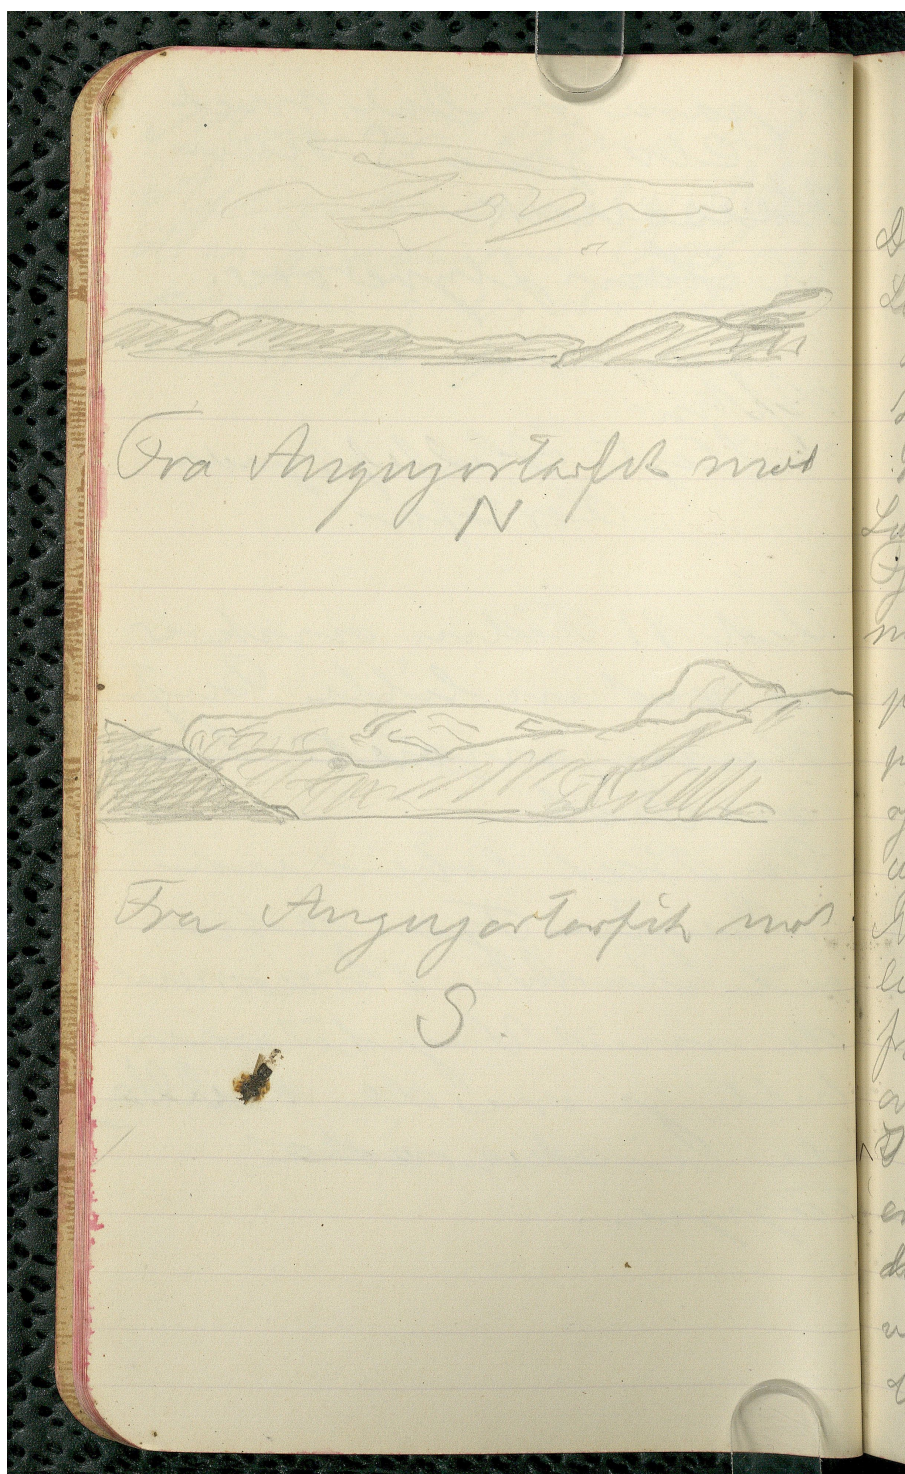 Fra Angujartorfik mod
N
Fra Angujartorfik mod
S.